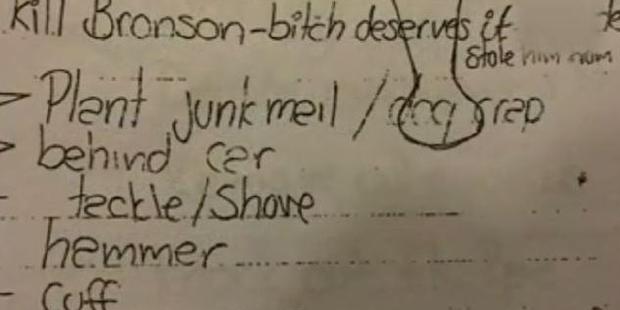 Kill Bronson-bitch deserves it
Stole him
> Plant junk meil / dog crep
> behind cer
- teckle/Shove
hemmer
- cuff